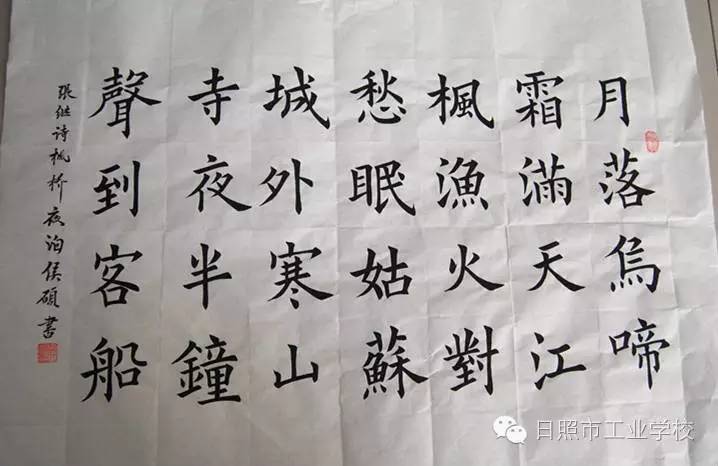 月落烏啼
霜滿天江
楓漁火對
愁眠姑蘇
城外寒山
寺夜半鐘
聲到客船
張继诗枫桥夜泊侯硕書
日照市工业学校